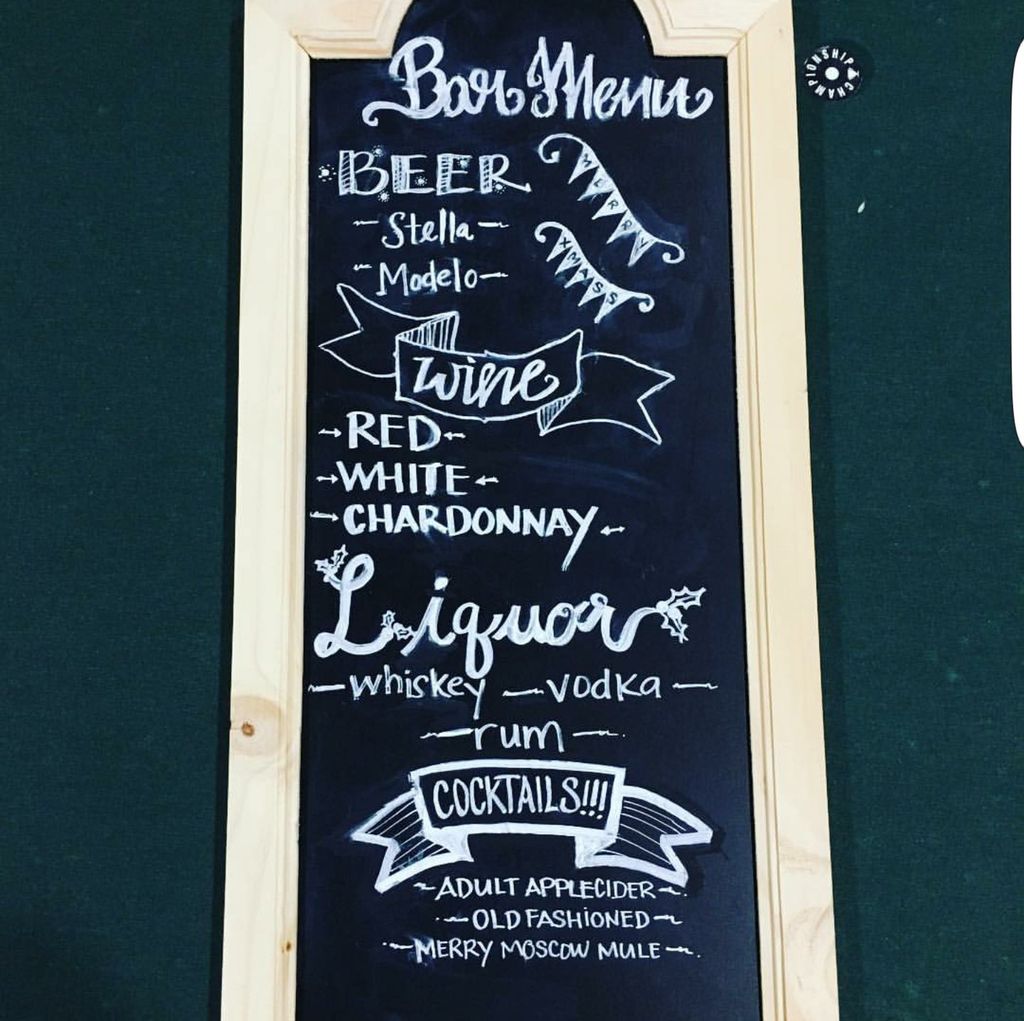 Bar Menu
BEER
MERRY
Stella
XMASS
Modelo
wine
RED
WHITE
CHARDONNAY
Liquor
whiskey vodka
rum
COCKTAILS!!!
ADULT APPLECIDER
OLD FASHIONED
MERRY MOSCOW MULE
CHAMPIONSHIP